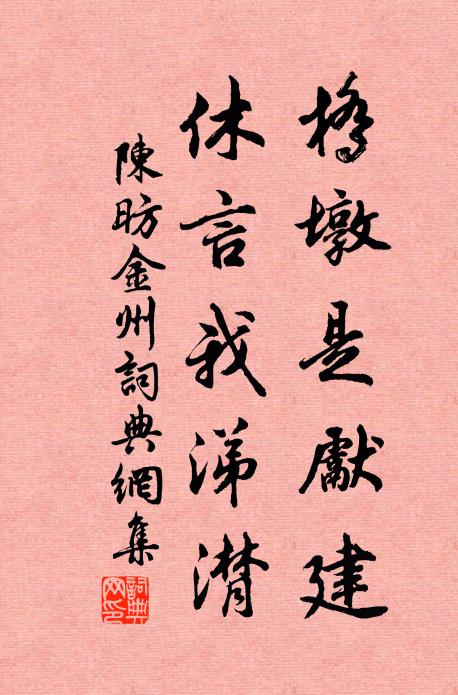 橋墩是獻建
休言我涕潸
陳昉金州詞典網集
詞典網印